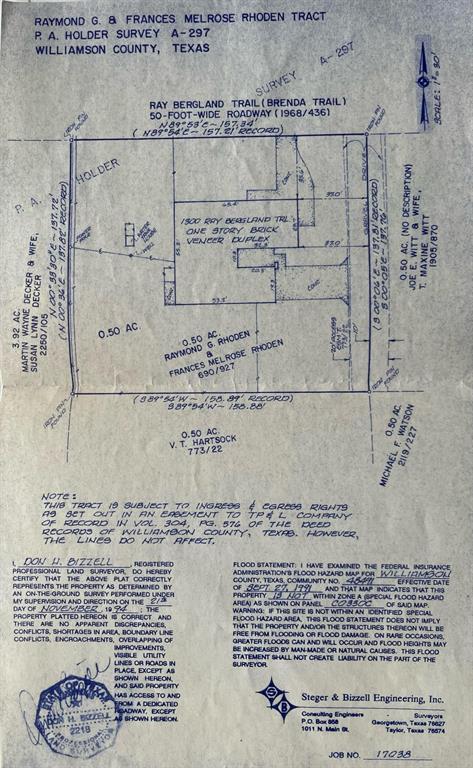 RAYMOND G. & FRANCES MELROSE RHODEN TRACT
P. A. HOLDER SURVEY A-297
WILLIAMSON COUNTY, TEXAS
SCALE: 1"= 30'
P. A. HOLDER SURVEY A-297
RAY BERGLAND TRAIL (BRENDA TRAIL)
50-FOOT-WIDE ROADWAY (1968/436)
N 89°53'E ~ 157.34'
(N 89°54'E ~ 157.21' RECORD)
IRON PIN
FOUND
3.92 AC.
MARTIN WAYNE DECKER & WIFE,
SUSAN LYNN DECKER
2250/105
N 00°33'30"E ~ 137.72'
(N 00°36'E ~ 137.82' RECORD)
1300 RAY BERGLAND TRL.
ONE STORY BRICK
VENEER DUPLEX
CONC.
CONC.
53.5'
GRAVEL DRIVE
20' ACCESS
ESM'T.
773/22
10'
0.50 AC. (NO DESCRIPTION)
JOE E. WITT & WIFE,
T. MAXINE WITT
1905/870
0.50 AC.
0.50 AC.
RAYMOND G. RHODEN
&
FRANCES MELROSE RHODEN
690/927
IRON PIN
FOUND
(S 89°54'W ~ 158.89' RECORD)
S 89°54'W ~ 158.88'
0.50 AC.
V. T. HARTSOCK
773/22
0.50 AC.
MICHAEL F. WATSON
2119/227
NOTE:
THIS TRACT IS SUBJECT TO INGRESS & EGRESS RIGHTS
AS SET OUT IN AN EASEMENT TO TP & L COMPANY
OF RECORD IN VOL. 304, PG. 576 OF THE DEED
RECORDS OF WILLIAMSON COUNTY, TEXAS. HOWEVER,
THE LINES DO NOT AFFECT.
I, DON H. BIZZELL, REGISTERED
PROFESSIONAL LAND SURVEYOR, DO HEREBY
CERTIFY THAT THE ABOVE PLAT CORRECTLY
REPRESENTS THE PROPERTY AS DETERMINED BY
AN ON-THE-GROUND SURVEY PERFORMED UNDER
MY SUPERVISION AND DIRECTION ON THE 21st
DAY OF NOVEMBER, 1994; THE
PROPERTY PLATTED HEREON IS CORRECT AND
THERE ARE NO APPARENT DISCREPANCIES,
CONFLICTS, SHORTAGES IN AREA, BOUNDARY LINE
CONFLICTS, ENCROACHMENTS, OVERLAPPING OF
IMPROVEMENTS,
VISIBLE UTILITY
LINES OR ROADS IN
PLACE, EXCEPT AS
SHOWN HEREON,
AND SAID PROPERTY
HAS ACCESS TO AND
FROM A DEDICATED
ROADWAY, EXCEPT
AS SHOWN HEREON.
DON H. BIZZELL
2218
FLOOD STATEMENT: I HAVE EXAMINED THE FEDERAL INSURANCE
ADMINISTRATION'S FLOOD HAZARD MAP FOR WILLIAMSON
COUNTY, TEXAS, COMMUNITY NO. 48491 EFFECTIVE DATE
OF SEPT. 27, 1991 AND THAT MAP INDICATES THAT THIS
PROPERTY IS NOT WITHIN ZONE A (SPECIAL FLOOD HAZARD
AREA) AS SHOWN ON PANEL C0330C OF SAID MAP.
WARNING: IF THIS SITE IS NOT WITHIN AN IDENTIFIED SPECIAL
FLOOD HAZARD AREA, THIS FLOOD STATEMENT DOES NOT IMPLY
THAT THE PROPERTY AND/OR THE STRUCTURES THEREON WILL BE
FREE FROM FLOODING OR FLOOD DAMAGE. ON RARE OCCASIONS,
GREATER FLOODS CAN AND WILL OCCUR AND FLOOD HEIGHTS MAY
BE INCREASED BY MAN-MADE OR NATURAL CAUSES. THIS FLOOD
STATEMENT SHALL NOT CREATE LIABILITY ON THE PART OF THE
SURVEYOR.
Steger & Bizzell Engineering, Inc.
Consulting Engineers
P.O. Box 858
1011 N. Main St.
Surveyors
Georgetown, Texas 78627
Taylor, Texas 76574
JOB NO. 17038